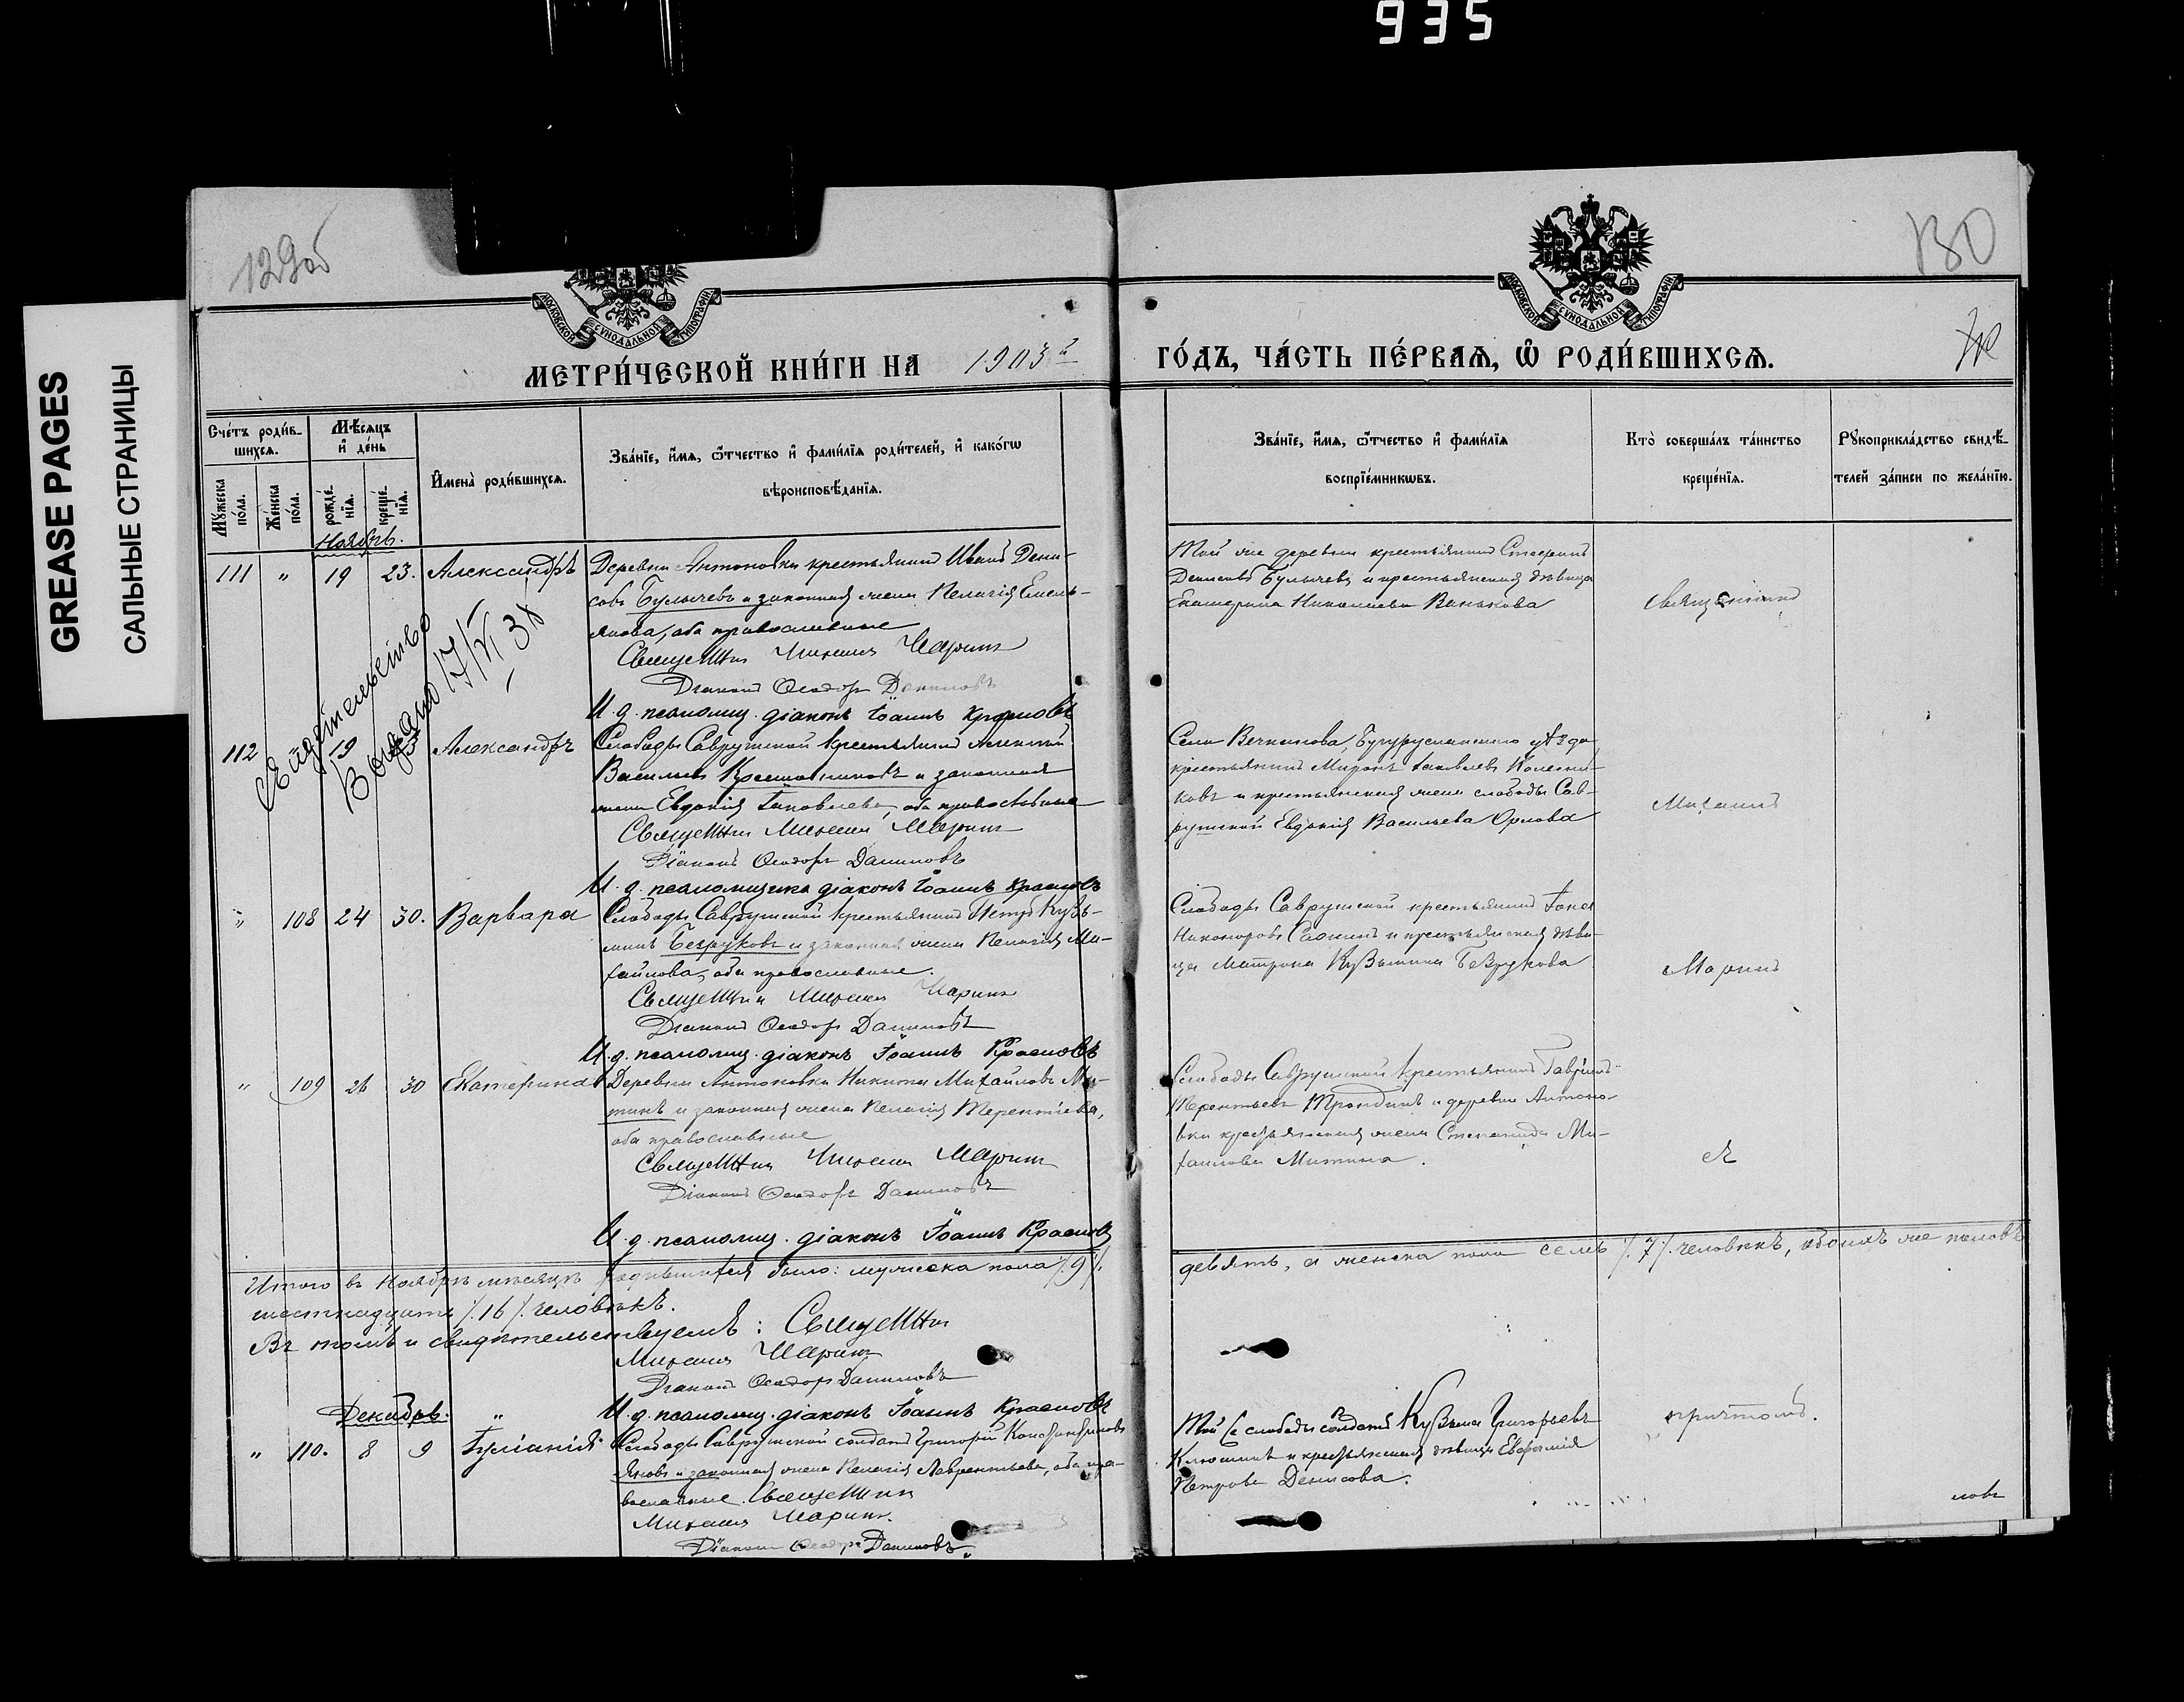 935
GREASE PAGES
САЛЬНЫЕ СТРАНИЦЫ
129об
130
МОСКОВСКОЙ СУНОДАЛЬНОЙ ТИПОГРАФІИ
МОСКОВСКОЙ СУНОДАЛЬНОЙ ТИПОГРАФІИ
МЕТРИ́ЧЕСКОЙ КНИ́ГИ НА 1903й
ГО́ДЪ, ЧА́СТЬ ПЕ́РВАЯ, Ѡ РОДИ́ВШИХСЯ.
Сче́тъ роди́вшихся.
Мꙋ́жеска по́ла.
Же́нска по́ла.
Мѣ́сяцъ и де́нь
рожде́нїя.
креще́нїя.
Имена̀ роди́вшихся.
Зва́нїе, и́мя, ѻ́тчество и фами́лїя роди́телей, и како́гѡ
вѣроисповѣ́данїя.
Зва́нїе, и́мя, ѻ́тчество и фами́лїя
воспрїе́мникѡвъ.
Кто̀ соверша́лъ та́инство
креще́нїя.
Рꙋкоприкла́дство свидѣ́-
телей за́писи по жела́нїю.
Ноябрь.
111 " 19 23. Александръ
Деревни Антоновки крестьянинъ Иванъ Дени-
совъ Булычевъ и законная жена Пелагія Емель-
янова, оба православные
Священникъ Михаилъ Маринъ
Діаконъ Ѳеодоръ Даниловъ
И. д. псаломщ. діаконъ Іоаннъ Красновъ
Той же деревни крестьянинъ Стефанъ
Денисовъ Булычевъ и крестьянская дѣвица
Екатерина Николаева Ванькова
Священникъ
Свидѣтельство
Выдано 17/VI 38
112 19 Александръ
Слободы Саврушской крестьянинъ Алексій
Васильевъ и законная
жена Евдокія Іаковлева, оба православные
Священникъ Михаилъ Маринъ
Діаконъ Ѳеодоръ Даниловъ
И. д. псаломщика діаконъ Іоаннъ Красновъ
Села Вечканова, Бугурусланскаго уѣзда,
крестьянинъ Миронъ Іаковлевъ Колесни-
ковъ и крестьянская жена слободы Сав-
рушской Евдокія Васильева Орлова
Михаилъ
" 108 24 30. Варвара
Слободы Саврушской крестьянинъ Петръ Кузь-
минъ Безруковъ и законная жена Пелагія Ми-
хайлова, оба православные.
Священникъ Михаилъ Маринъ
Діаконъ Ѳеодоръ Даниловъ
И. д. псаломщ. діаконъ Іоаннъ Красновъ
Слободы Саврушской крестьянинъ Іона
Никаноровъ и крестьянская дѣви-
ца Матрона Кузьмина Безрукова
Маринъ
" 109 26 30 Екатерина
Деревни Антоновки Никита Михайловъ Ми-
тинъ и законная жена Пелагія Терентіева,
оба православные
Священникъ Михаилъ Маринъ
Діаконъ Ѳеодоръ Даниловъ
И. д. псаломщ. діаконъ Іоаннъ Красновъ
Слободы Саврушской крестьянинъ Гавріилъ
Терентьевъ Трондинъ и деревни Антоно-
вки крестьянская жена Степанида Ми-
хаилова Митина.
съ
Итого въ Ноябрѣ мѣсяцѣ родившихся было: мужеска пола /.9/.
девять, а женска пола семь /.7/. человѣкъ, обоихъ же половъ
шестнадцать /.16/. человѣкъ.
Въ томъ и свидѣтельствуемъ: Священникъ
Михаилъ Маринъ
Діаконъ Ѳеодоръ Даниловъ
И. д. псаломщ. діаконъ Іоаннъ Красновъ
Декабрь.
" 110. 8 9 Іуліанія
Слободы Саврушской солдатъ Григорій Константиновъ
и законная жена Пелагія Лаврентьева, оба пра-
вославные. Священникъ
Михаилъ Маринъ.
Діаконъ Ѳеодоръ Даниловъ
Той же слободы солдатъ Кузьма Григорьевъ
Клюшинъ и крестьянская дѣвица Евфимія
Петрова Денисова.
причтомъ.
ловъ